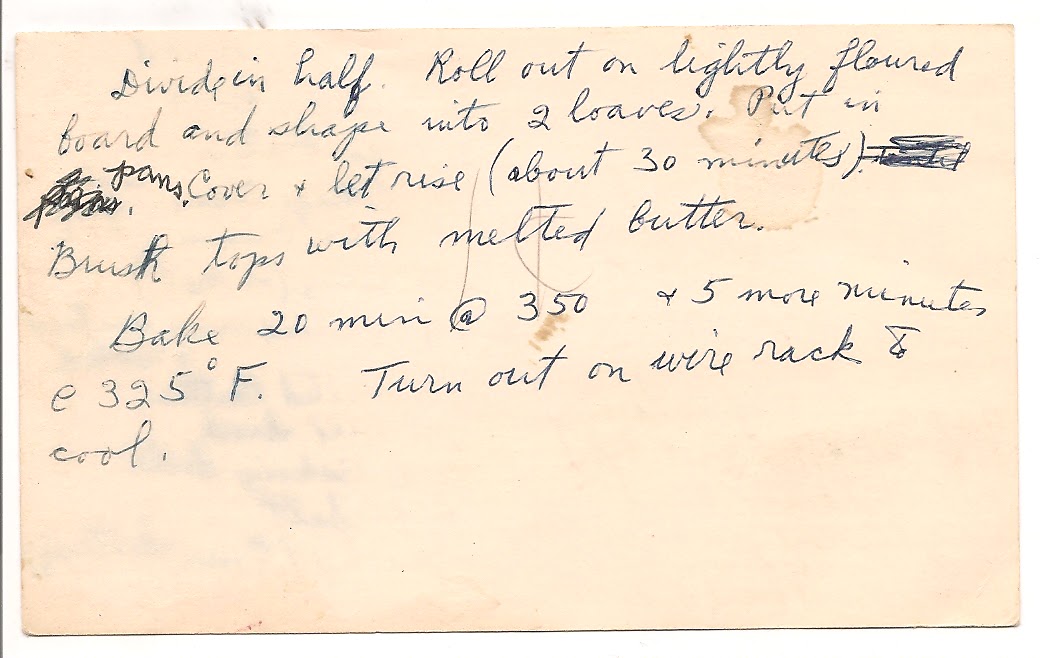 Divide in half. Roll out on lightly floured
board and shape into 2 loaves. Put in
pans. Cover & let rise (about 30 minutes).
Brush tops with melted butter.
Bake 20 min @ 350 & 5 more minutes
@ 325° F. Turn out on wire rack to
cool.